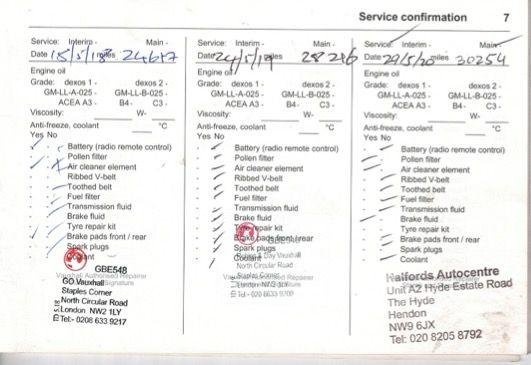 Service confirmation 7
Service: Interim - Main -
Date 15/5/18 miles 24617
Engine oil
Grade: dexos 1 - dexos 2 -
GM-LL-A-025 - GM-LL-B-025 -
ACEA A3 - B4- C3 -
Viscosity: W-
Anti-freeze, coolant °C
Yes No
Battery (radio remote control)
Pollen filter
Air cleaner element
Ribbed V-belt
Toothed belt
Fuel filter
Transmission fluid
Brake fluid
Tyre repair kit
Brake pads front / rear
Spark plugs
Coolant
GBE548
Vauxhall Authorised Repairer
GO Vauxhall Signature
Staples Corner
North Circular Road
London NW2 1LY
Tel:- 0208 633 9217
Service: Interim - Main -
Date 24/5/19 miles 28216
Engine oil
Grade: dexos 1 - dexos 2 -
GM-LL-A-025 - GM-LL-B-025 -
ACEA A3 - B4- C3 -
Viscosity: W-
Anti-freeze, coolant °C
Yes No
Battery (radio remote control)
Pollen filter
Air cleaner element
Ribbed V-belt
Toothed belt
Fuel filter
Transmission fluid
Brake fluid
Tyre repair kit
Brake pads front / rear
GBE548
Spark plugs
Day Vauxhall
Coolant
North Circular Road
Authorised Repairer
Staples Corner
London NW2
Tel - 020 8633 9700
Service: Interim - Main -
Date 29/5/20 miles 30254
Engine oil
Grade: dexos 1 - dexos 2 -
GM-LL-A-025 - GM-LL-B-025 -
ACEA A3 - B4- C3 -
Viscosity: W-
Anti-freeze, coolant °C
Yes No
Battery (radio remote control)
Pollen filter
Air cleaner element
Ribbed V-belt
Toothed belt
Fuel filter
Transmission fluid
Brake fluid
Tyre repair kit
Brake pads front / rear
Spark plugs
Coolant
Halfords Autocentre
Unit A2 Hyde Estate Road
The Hyde
Hendon
NW9 6JX
Tel: 020 8205 8792